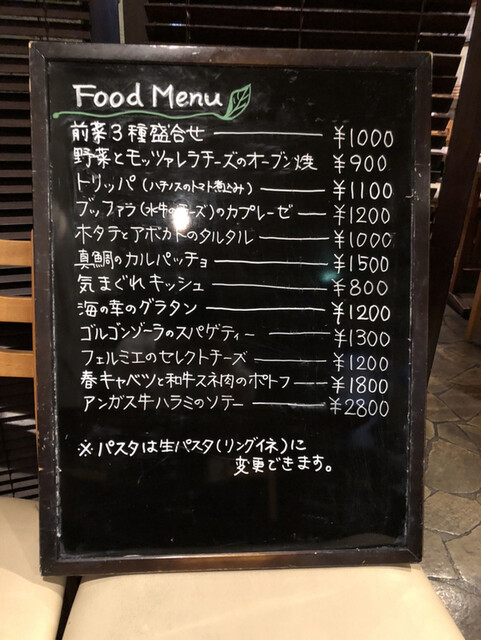 Food Menu
前菜3種盛合せ ¥1000
野菜とモッツァレラチーズのオーブン焼 ¥900
トリッパ(ハチノスのトマト煮込み) ¥1100
ブッファラ(水牛のチーズ)のカプレーゼ ¥1200
ホタテとアボカドのタルタル ¥1000
真鯛のカルパッチョ ¥1500
気まぐれキッシュ ¥800
海の幸のグラタン ¥1200
ゴルゴンゾーラのスパゲティー ¥1300
フェルミエのセレクトチーズ ¥1200
春キャベツと和牛スネ肉のポトフ ¥1800
アンガス牛ハラミのソテー ¥2800
※パスタは生パスタ(リングイネ)に
変更できます。